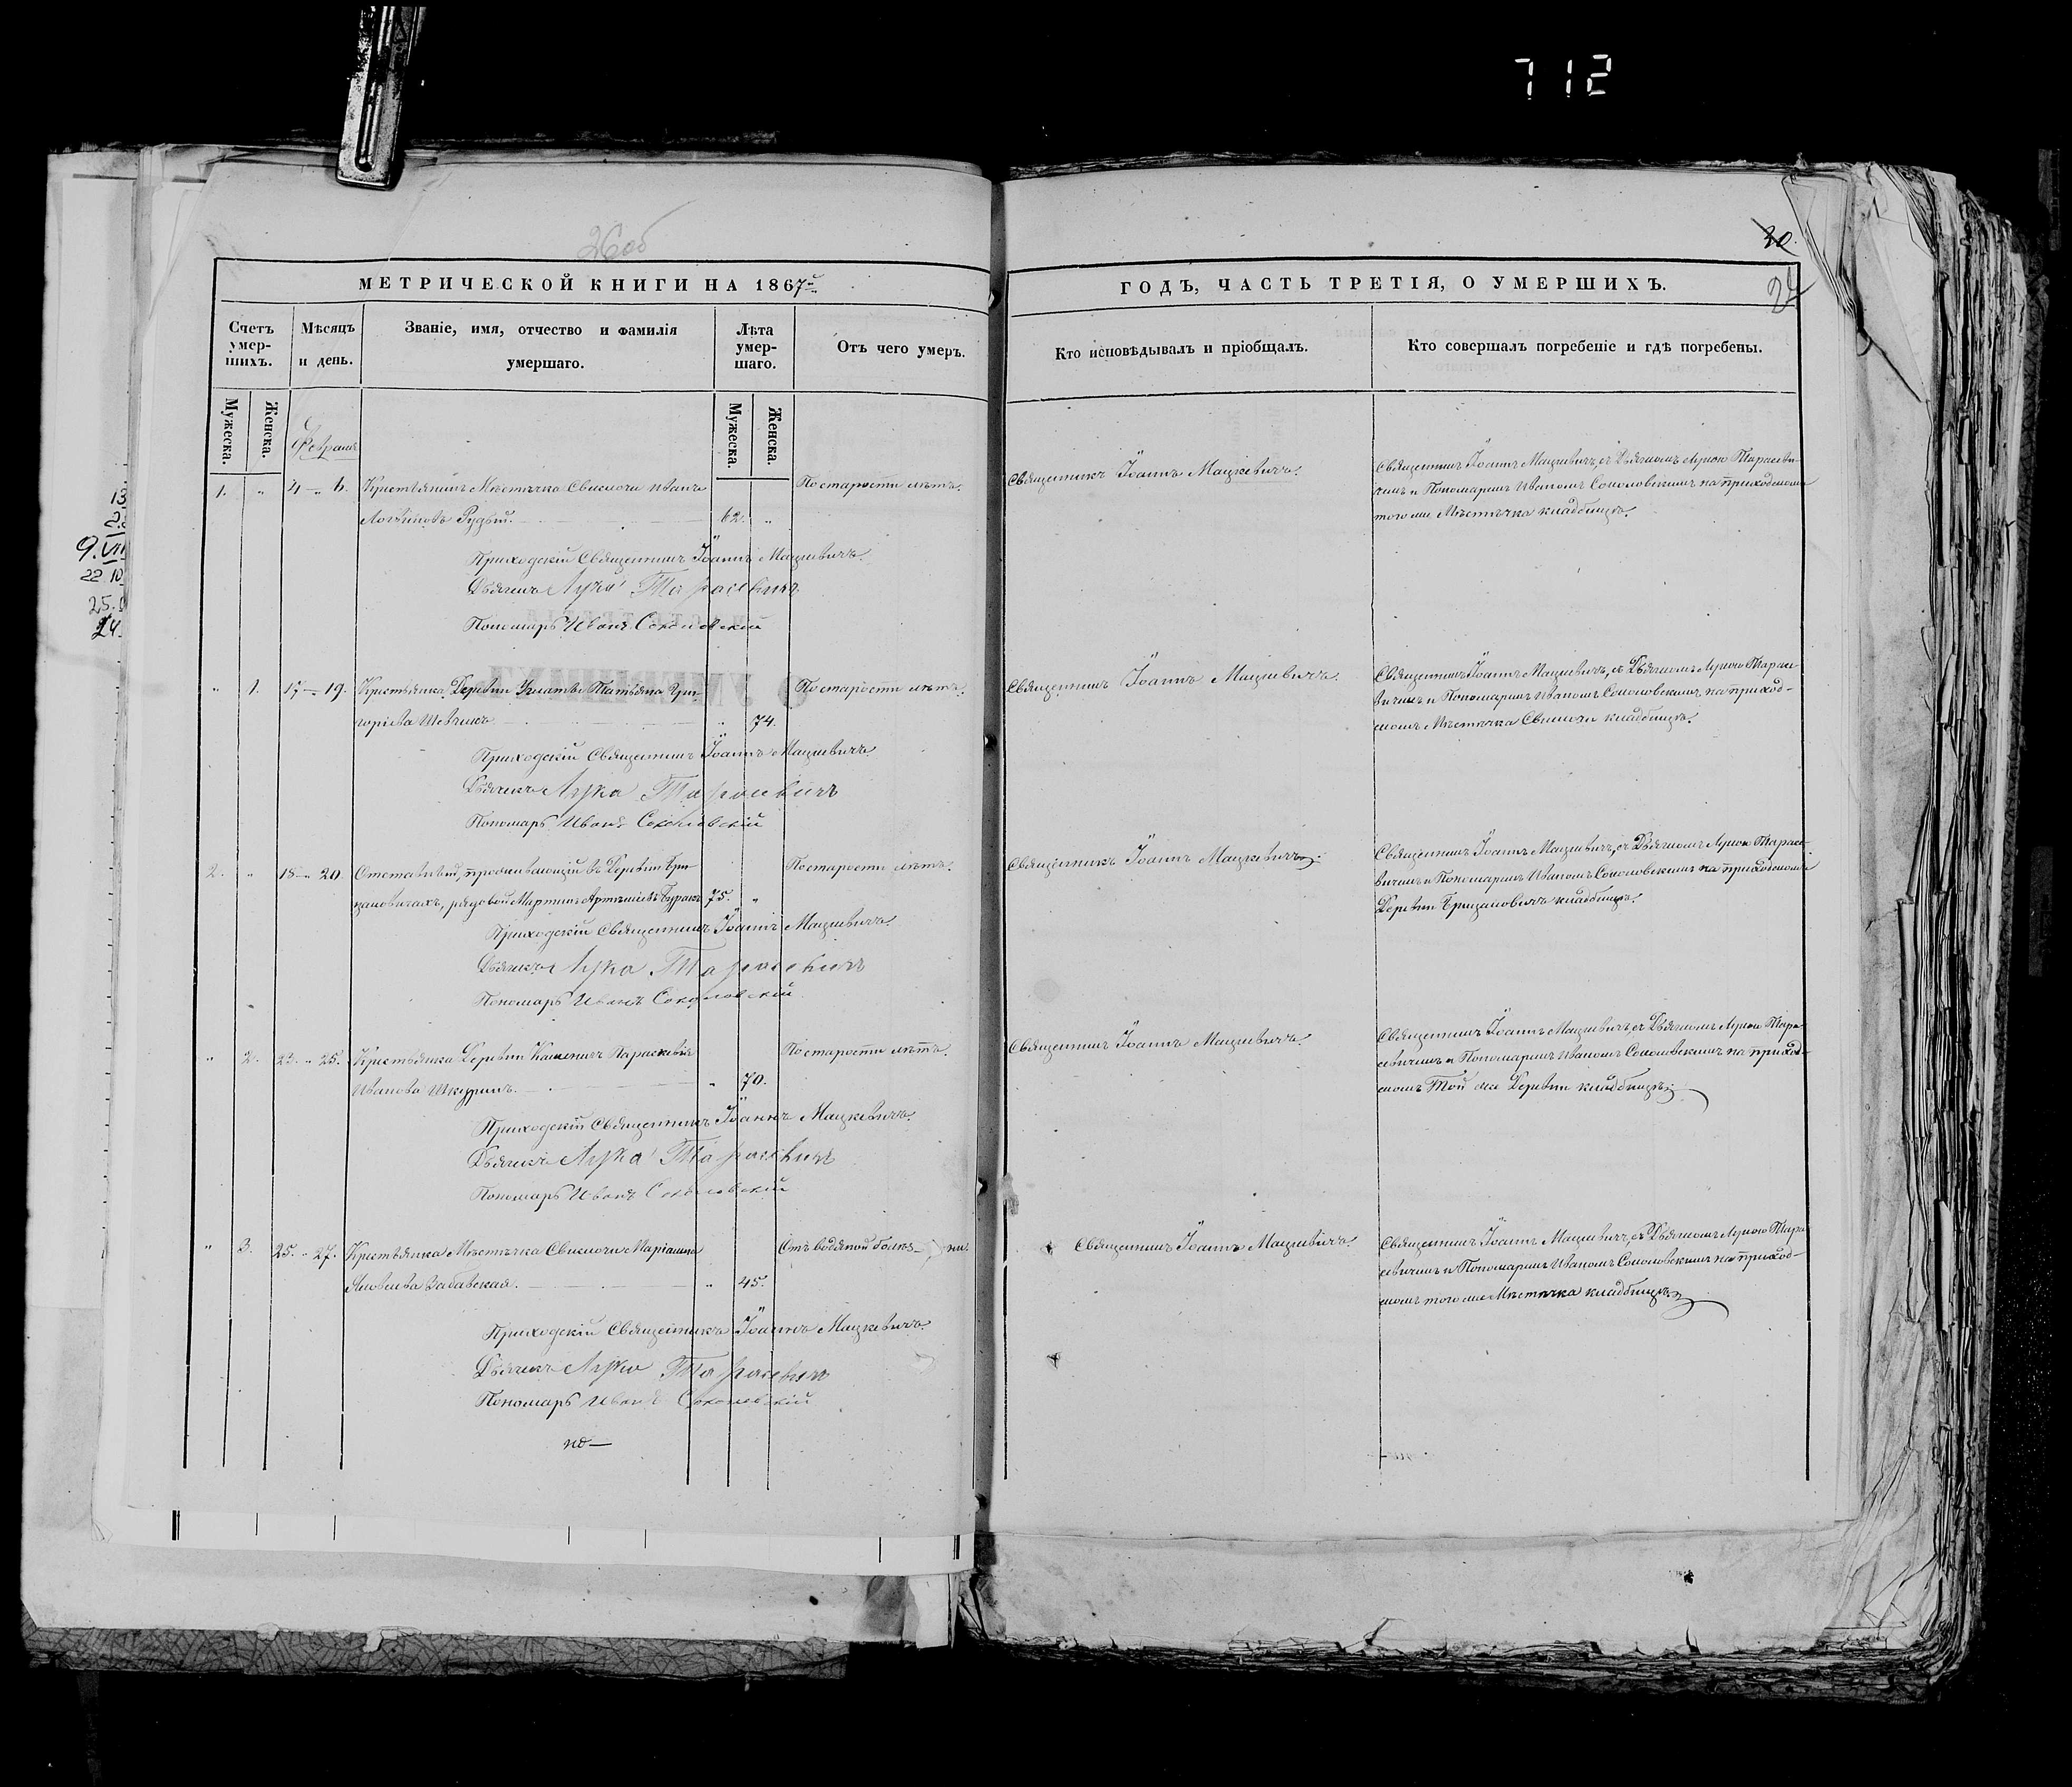 712
26об
20.
27
МЕТРИЧЕСКОЙ КНИГИ НА 1867й
ГОДЪ, ЧАСТЬ ТРЕТІЯ, О УМЕРШИХЪ.
Счетъ умер-шихъ.
Мѣсяцъ и день.
Званіе, имя, отчество и фамилія
умершаго.
Лѣта умер-шаго.
Отъ чего умеръ.
Кто исповѣдывалъ и пріобщалъ.
Кто совершалъ погребеніе и гдѣ погребены.
Мужеска.
Женска.
Мужеска.
Женска.
Февраль
1. " 4 - 6. Крестьянинъ Мѣстечка Свислочи Иванъ
Рудый. 62. "
По старости лѣтъ.
Священникъ Іоаннъ Мацкевичъ.
Священникъ Іоаннъ Мацкевичъ, съ Дьячкомъ Лукою Тарасеви-
чемъ и Пономаремъ Иваномъ Соколовскимъ на приходскомъ
того же Мѣстечка кладбищѣ.
Приходскій Священникъ Іоаннъ Мацкевичъ.
Дьячекъ Лука Тарасевичъ
Пономарь Иванъ Соколовскій
" 1. 17 - 19. Крестьянка Деревни Татьяна Гри-
горіева Шевчикъ " 74.
По старости лѣтъ.
Священникъ Іоаннъ Мацкевичъ.
Священникъ Іоаннъ Мацкевичъ, съ Дьячкомъ Лукою Тарасе-
вичемъ и Пономаремъ Иваномъ Соколовскимъ на приход-
скомъ Мѣстечка Свислочи кладбищѣ.
Приходскій Священникъ Іоаннъ Мацкевичъ.
Дьячекъ Лука Тарасевичъ
Пономарь Иванъ Соколовскій
2. " 18 - 20. Отставной, проживающій въ Деревни Гри-
цановичахъ, рядовой Мартинъ 75. "
По старости лѣтъ.
Священникъ Іоаннъ Мацкевичъ.
Священникъ Іоаннъ Мацкевичъ, съ Дьячкомъ Лукою Тарасе-
вичемъ и Пономаремъ Иваномъ Соколовскимъ на приходскомъ
Деревни кладбищѣ.
Приходскій Священникъ Іоаннъ Мацкевичъ.
Дьячекъ Лука Тарасевичъ
Пономарь Иванъ Соколовскій
" 2. 23. " 25. Крестьянка Деревни Параскевія
Иванова Шкуринъ. " 70.
По старости лѣтъ.
Священникъ Іоаннъ Мацкевичъ.
Священникъ Іоаннъ Мацкевичъ, съ Дьячкомъ Лукою Тара-
севичемъ и Пономаремъ Иваномъ Соколовскимъ на приход-
скомъ той же Деревни кладбищѣ.
Приходскій Священникъ Іоаннъ Мацкевичъ.
Дьячекъ Лука Тарасевичъ
Пономарь Иванъ Соколовскій
" 3. 25. " 27. Крестьянка Мѣстечка Свислочи Маріанна
Яковлева Забавская. " 45.
Отъ водяной болѣз-ни.
Священникъ Іоаннъ Мацкевичъ.
Священникъ Іоаннъ Мацкевичъ, съ Дьячкомъ Лукою Тара-
севичемъ и Пономаремъ Иваномъ Соколовскимъ на приход-
скомъ того же Мѣстечка кладбищѣ.
Приходскій Священникъ Іоаннъ Мацкевичъ.
Дьячекъ Лука Тарасевичъ
Пономарь Иванъ Соколовскій